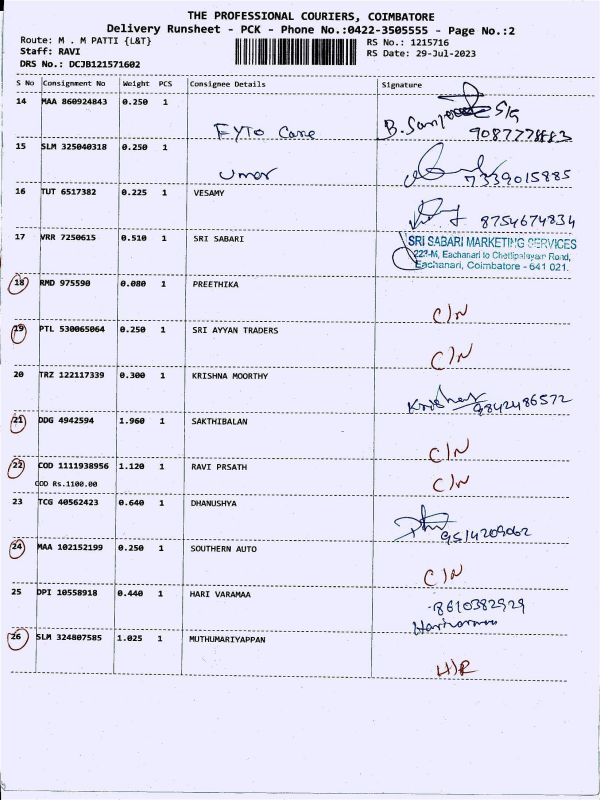 THE PROFESSIONAL COURIERS, COIMBATORE
Delivery Runsheet - PCK - Phone No.:0422-3505555 - Page No.:2
Route: M . M PATTI {L&T}
RS No.: 1215716
Staff: RAVI
RS Date: 29-Jul-2023
DRS No.: DCJB121571602
S No Consignment No Weight PCS Consignee Details Signature
14 MAA 860924843 0.250 1
FYTO Care B. Sanj
15 SLM 325040318 0.250 1
Umar 7339015885
16 TUT 6517382 0.225 1 VESAMY
8754674834
17 VRR 7250615 0.510 1 SRI SABARI
SRI SABARI MARKETING SERVICES
223-M, Eachanari to Chettipalayam Road,
Eachanari, Coimbatore - 641 021.
18 RMD 975590 0.080 1 PREETHIKA
C/N
19 PTL 530065064 0.250 1 SRI AYYAN TRADERS
C/N
20 TRZ 122117339 0.300 1 KRISHNA MOORTHY
9842486572
21 DDG 4942594 1.960 1 SAKTHIBALAN
C/N
22 COD 1111938956 1.120 1 RAVI PRSATH
COD Rs.1100.00
C/N
23 TCG 40562423 0.640 1 DHANUSHYA
9514209062
24 MAA 102152199 0.250 1 SOUTHERN AUTO
C/N
25 DPI 10558918 0.440 1 HARI VARAMAA
8610382929
26 SLM 324807585 1.025 1 MUTHUMARIYAPPAN